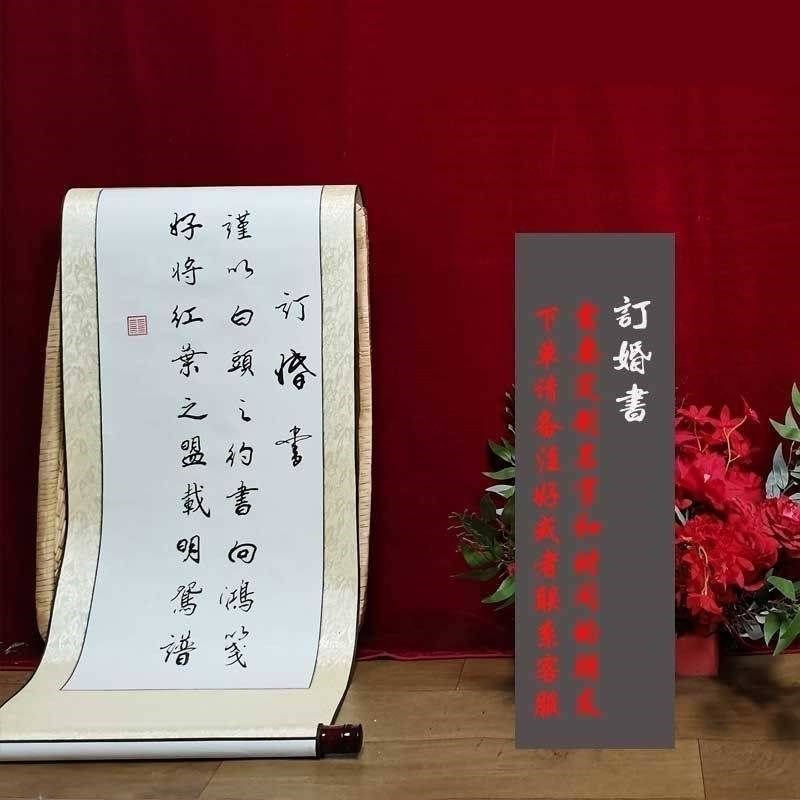 訂婚書
謹以白頭之約書向鴻箋
好將紅葉之盟載明鴛譜
訂婚書
需要定制名字和时间的朋友
下单请备注好或者联系客服